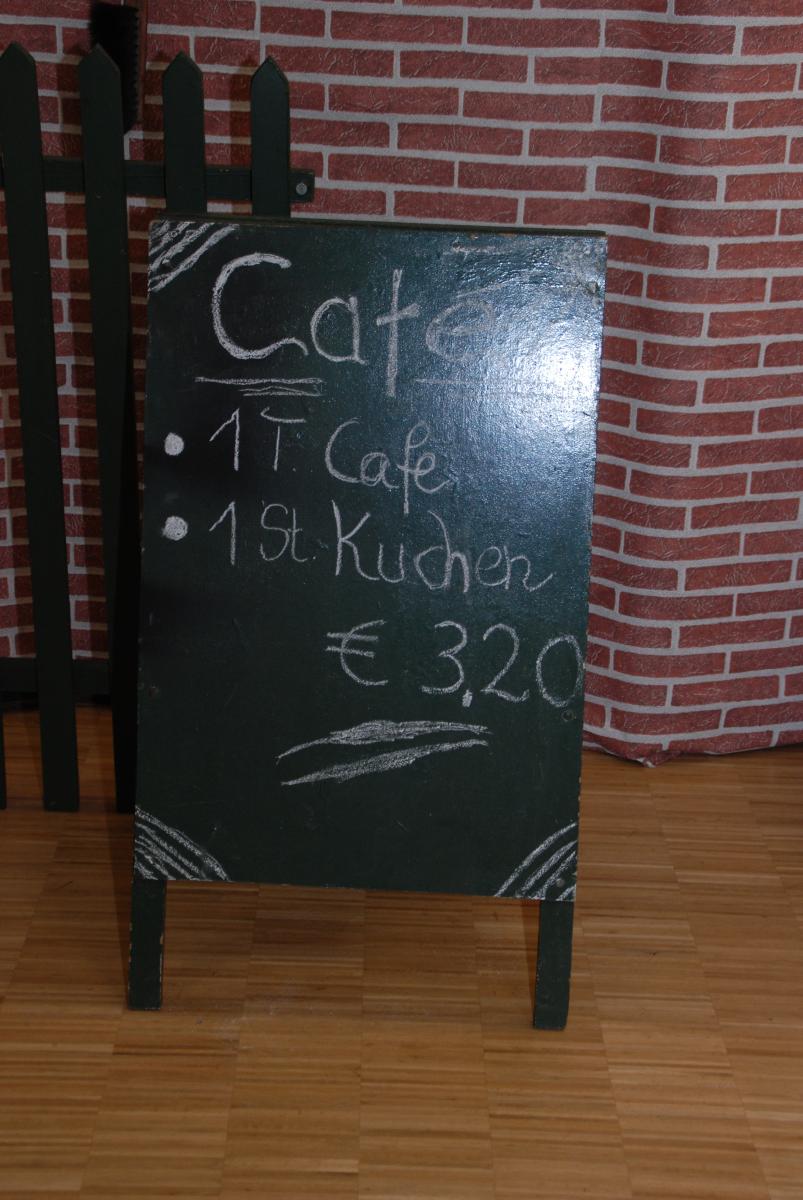 Café
1 T. Cafe
1 St. Kuchen
€ 3,20